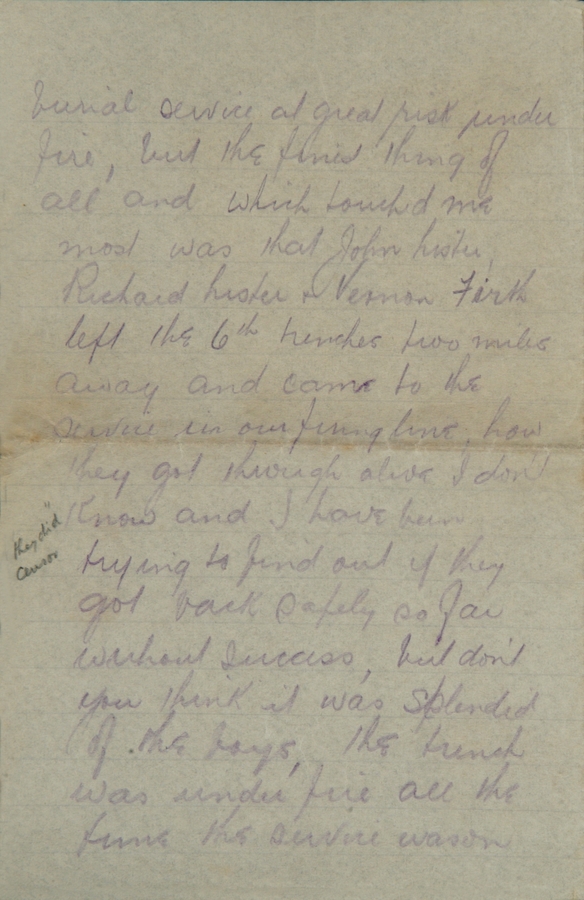 burial service at great risk under
fire, but the finest thing of
all and which touch'd me
most was that John Lister,
Richard Lister & Vernon Firth
left the 6th trenches two miles
away and came to the
service in our firing line, how
they got through alive I don't
know and I have been
"they did"
censor
trying to find out if they
got back safely so far
without success, but don't
you think it was splended
of the boys, the trench
was under fire all the
time the service was on